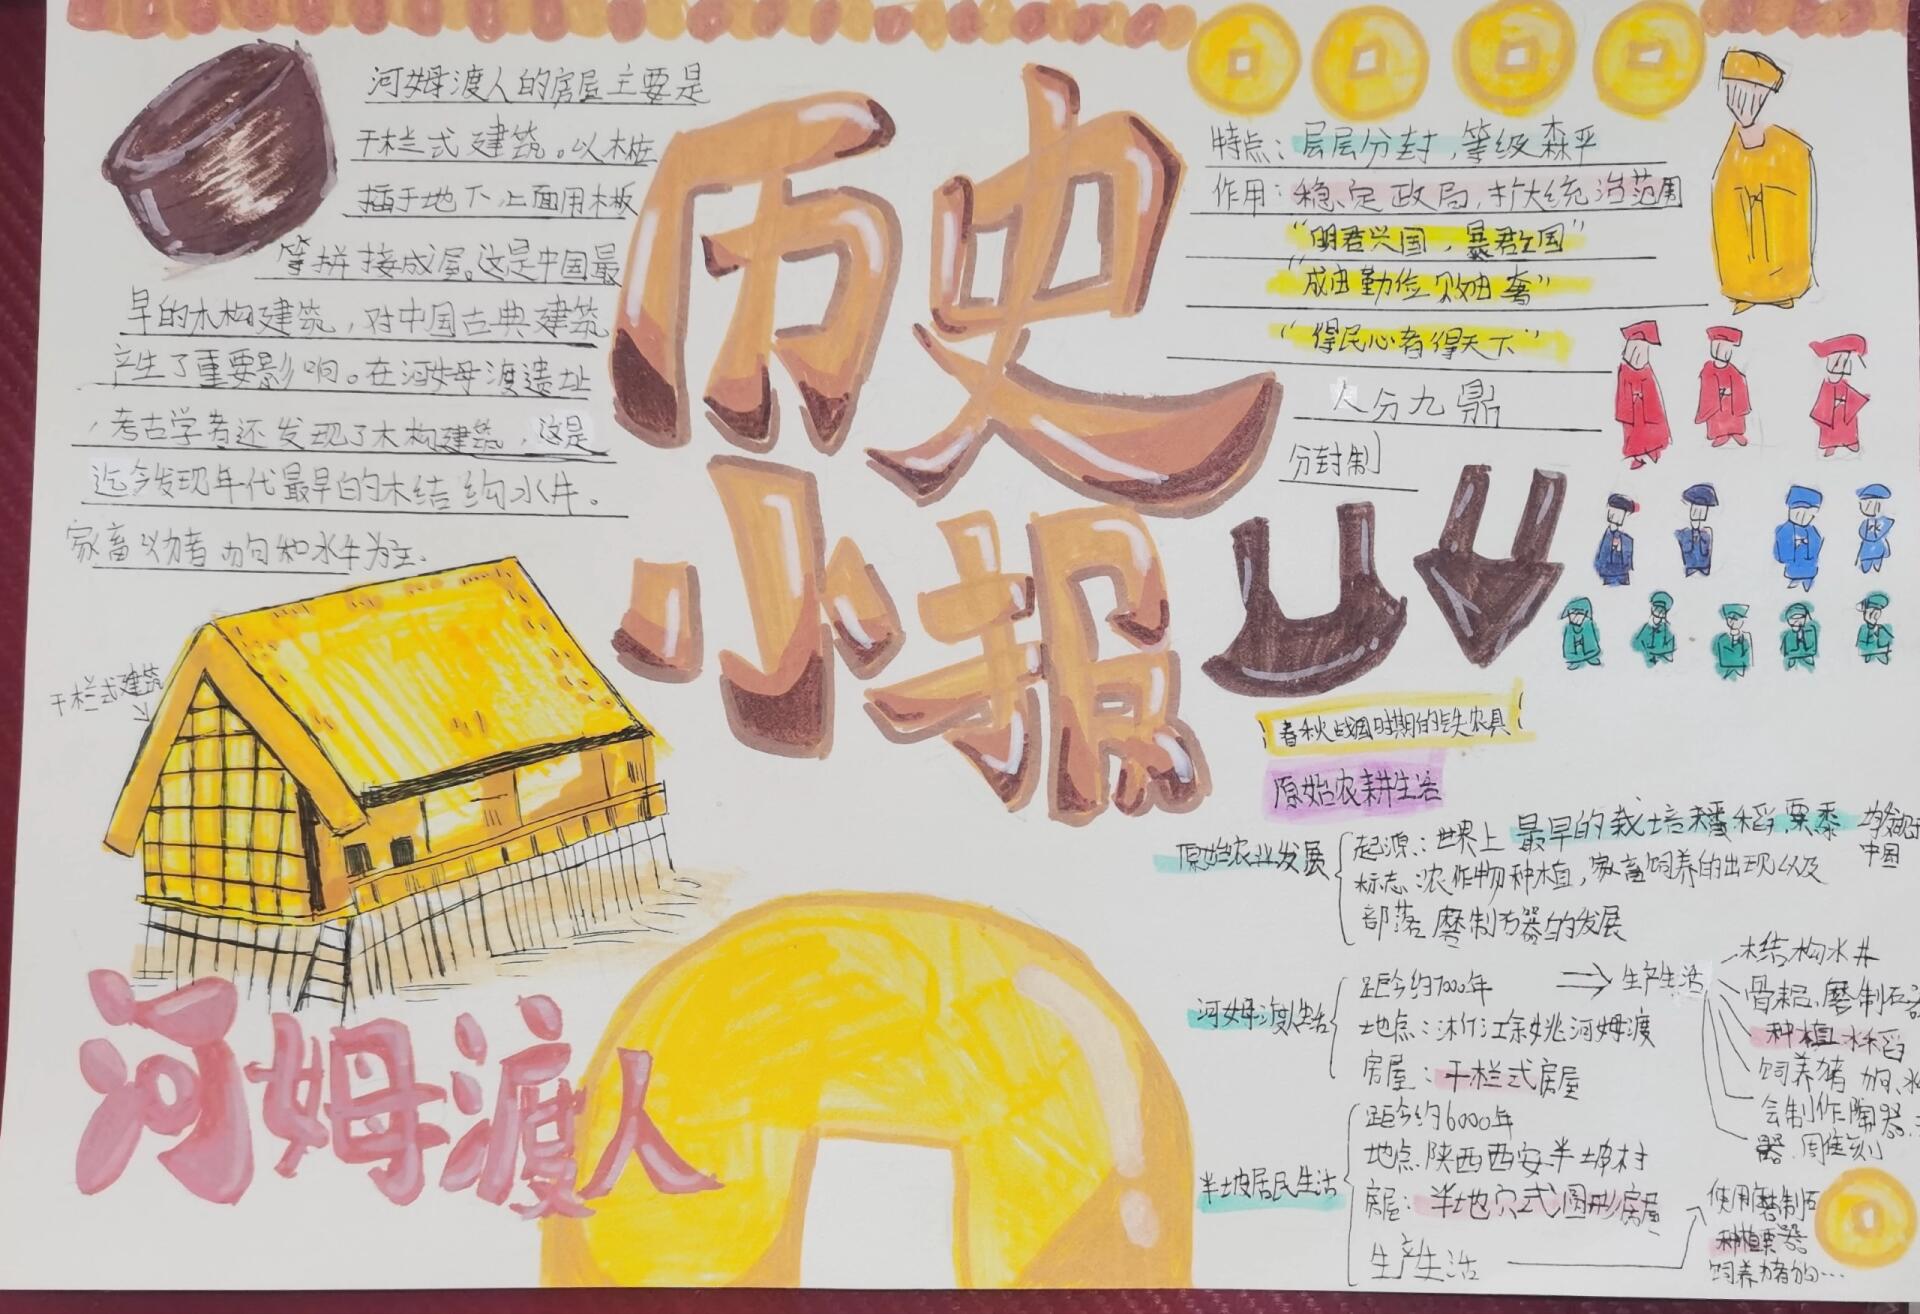 河姆渡人的房屋主要是
干栏式建筑。以木桩
插于地下,上面用木板
等拼接成屋。这是中国最
早的木构建筑，对中国古典建筑
产生了重要影响。在河姆渡遗址
，考古学者还发现了木构建筑，这是
迄今发现年代最早的木结构水井。
家畜以猪狗和水牛为主.
干栏式建筑
河姆渡人
历史
小报
特点：层层分封，等级森严
作用：稳定政局，扩大统治范围
“明君兴国，暴君亡国”
“成由勤俭败由奢”
“得民心者得天下”
人分九鼎
分封制
春秋战国时期的铁农具
原始农耕生活
原始农业发展
起源：世界上最早的栽培稻，粟黍
中国
标志：农作物种植，家畜饲养的出现以及
部落 磨制石器的发展
河姆渡人生活
距今约7000年
地点：浙江余姚河姆渡
房屋：干栏式房屋
生产生活
木结构水井
骨耜、磨制石
种植水稻
饲养猪 狗、水
会制作陶器、
器、雕刻
半坡居民生活
距今约6000年
地点 陕西西安半坡村
房屋：半地穴式圆形房屋
生产生活
使用磨制石
种植粟器
饲养猪狗…